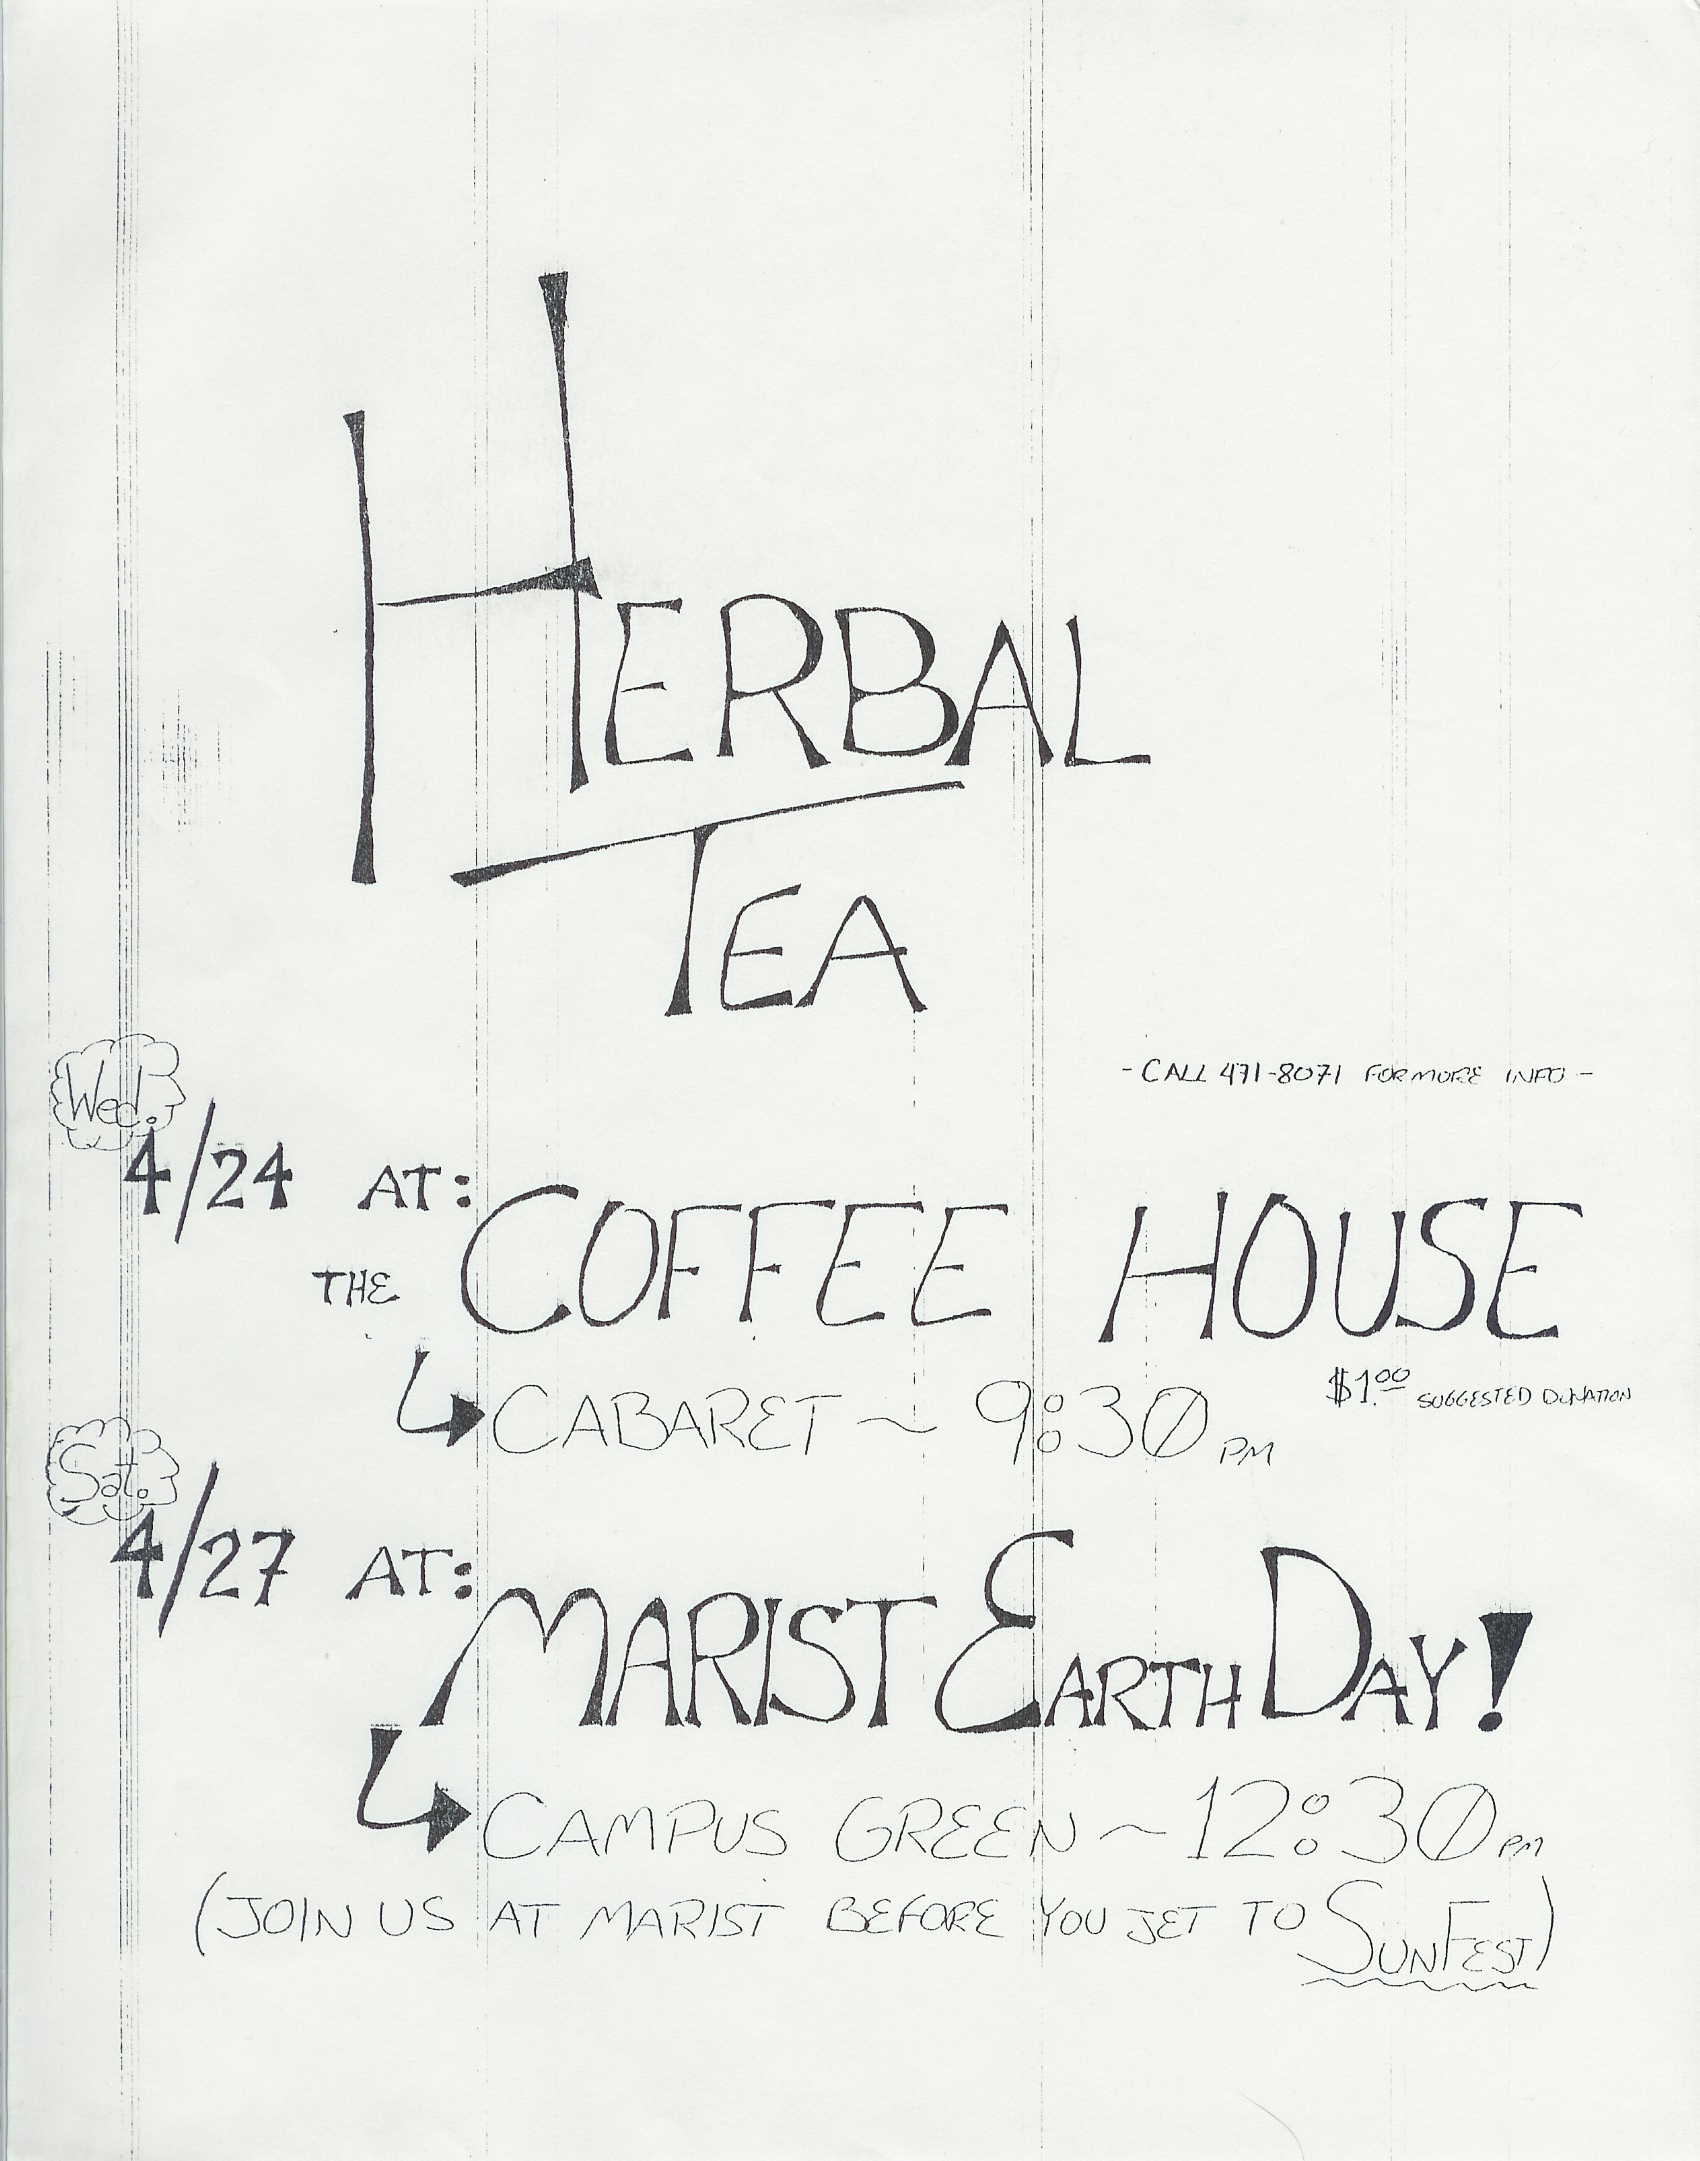 HERBAL
TEA
- CALL 471-8071 FOR MORE INFO -
Wed.
4/24 AT:
THE COFFEE HOUSE
CABARET ~ 9:30 PM
$1.00 SUGGESTED DONATION
Sat.
4/27 AT:
MARIST EARTH DAY!
CAMPUS GREEN ~ 12:30 PM
(JOIN US AT MARIST BEFORE YOU JET TO SUNFEST)